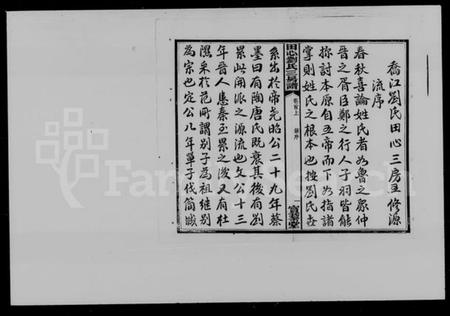 喬江劉氏田心三房主修源
流序
春秋喜論姓氏者如魯之眾仲
晉之胥臣鄭之行人子羽皆能
探討本原自五帝而下如指諸
掌則姓氏之根本也按劉氏世
田心劉氏三房譜
卷首上
系出於帝堯昭公二十九年蔡
墨曰有陶唐氏既衰其後有劉
累此用派之源流也文公十三
年晉人患秦至累之後又有杜
隰采於范所謂別子為祖繼別
為宗也定公八年單子伐簡城